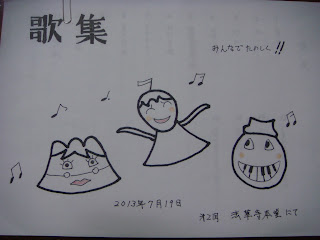 歌集
みんなでたのしく!!
2013年7月19日
第2回 浅草寺本堂にて